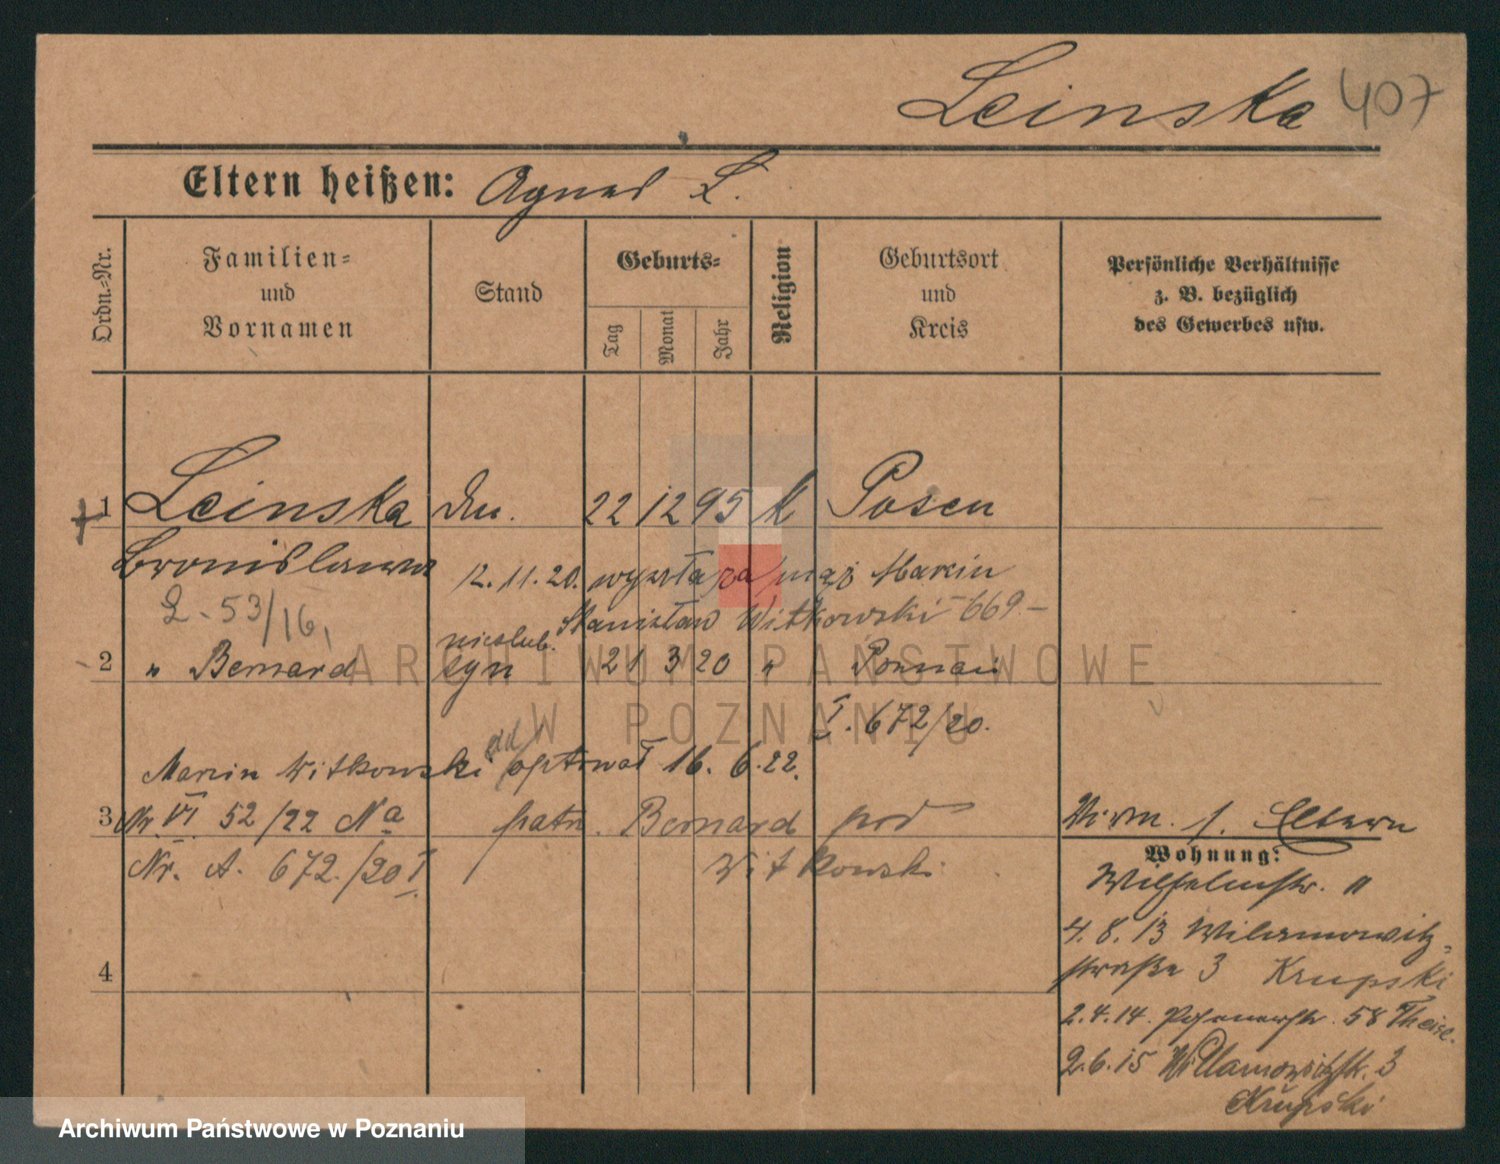 Leinska 407
Eltern heißen: Agnes L.
Ordn.-Nr.
Familien-
und
Vornamen
Stand
Geburts-
Tag
Monat
Jahr
Religion
Geburtsort
und
Kreis
Persönliche Verhältnisse
z. B. bezüglich
des Gewerbes usw.
1 Leinska 22 12 95 k Posen
Bronislawa
12.11.20. wyszła za mąż Marcin
Stanisław Witkowski 669 –
L. 53/16,
nieslub.
2 " Bernard syn 21 3 20 " Poznań
I. 672/20.
Marcin Witkowski optował 16. 6. 22.
3 Nr. VI 52/22 Na patrz. Bernard pod
Nr. A. 672./20 I. Witkowski
4
s. Eltern
Wohnung:
Wilhelmstr. 11
4. 8. 13 Wilamowitz-
straße 3 Krupski
2.4.14. 58 Theise.
2.6.15 Willamowitzstr. 3
Krupski
ARCHIWUM PAŃSTWOWE
W POZNANIU
Archiwum Państwowe w Poznaniu